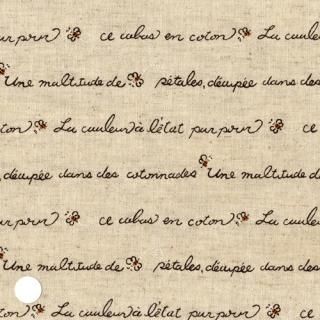 ur pour ce cubus en coton La couleu
Une multitude de pétales, découpée dans des
ton La couleur à l'état pur pour ce
, découpée dans des cotonnades Une multitude d
ur pour ce cubus en coton La couleu
Une multitude de pétales, découpée dans des
ton La couleur à l'état pur pour ce